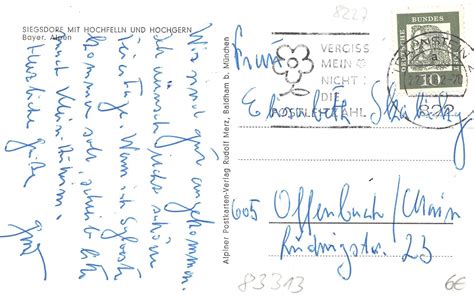 8227
SIEGSDORF MIT HOCHFELLN UND HOCHGERN
Bayer. Alpen
Wir sind gut angekommen.
Ich wünsch euch schöne
Feiertage. Wann ich Sylvester
kommen soll, schreib bitte
nach
Herzliche Grüße
Alpiner Postkarten-Verlag Rudolf Merz, Baldham b. München
VERGISS
MEIN
NICHT
DIE
POSTLEITZAHL
DEUTSCHE BUNDESPOST
822
Frau
Elisabeth
605 Offenbach/Main
Ludwigstr. 23
83313
6€